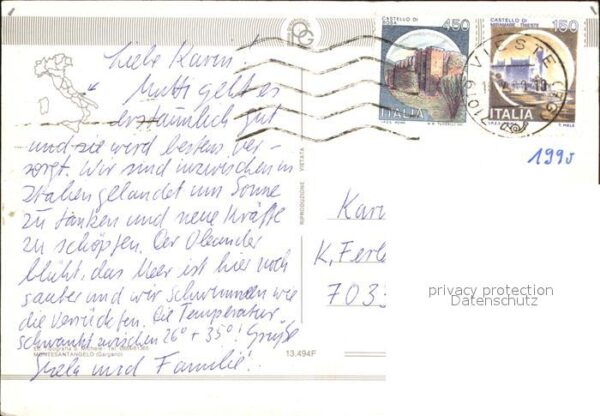 Liebe Karin!
Mutti geht es
erstaunlich gut
und sie wird bestens ver-
sorgt. Wir sind inzwischen in
Italien gelandet um Sonne
zu tanken und neue Kräfte
zu schöpfen. Der Oleander
blüht, das Meer ist hier noch
sauber und wir schwimmen wie
die Verrückten. Die Temperatur
schwankt zwischen 26° + 35°! Grüße
und Familie!
MONTESANTANGELO (Gargano)
13.494F
RIPRODUZIONE VIETATA
CASTELLO DI
ROSA
450
ITALIA
CASTELLO DI
MIRAMARE TRIESTE
150
ITALIA
VIESTE (FG)
71019
1995
K. Ferl
privacy protection
Datenschutz